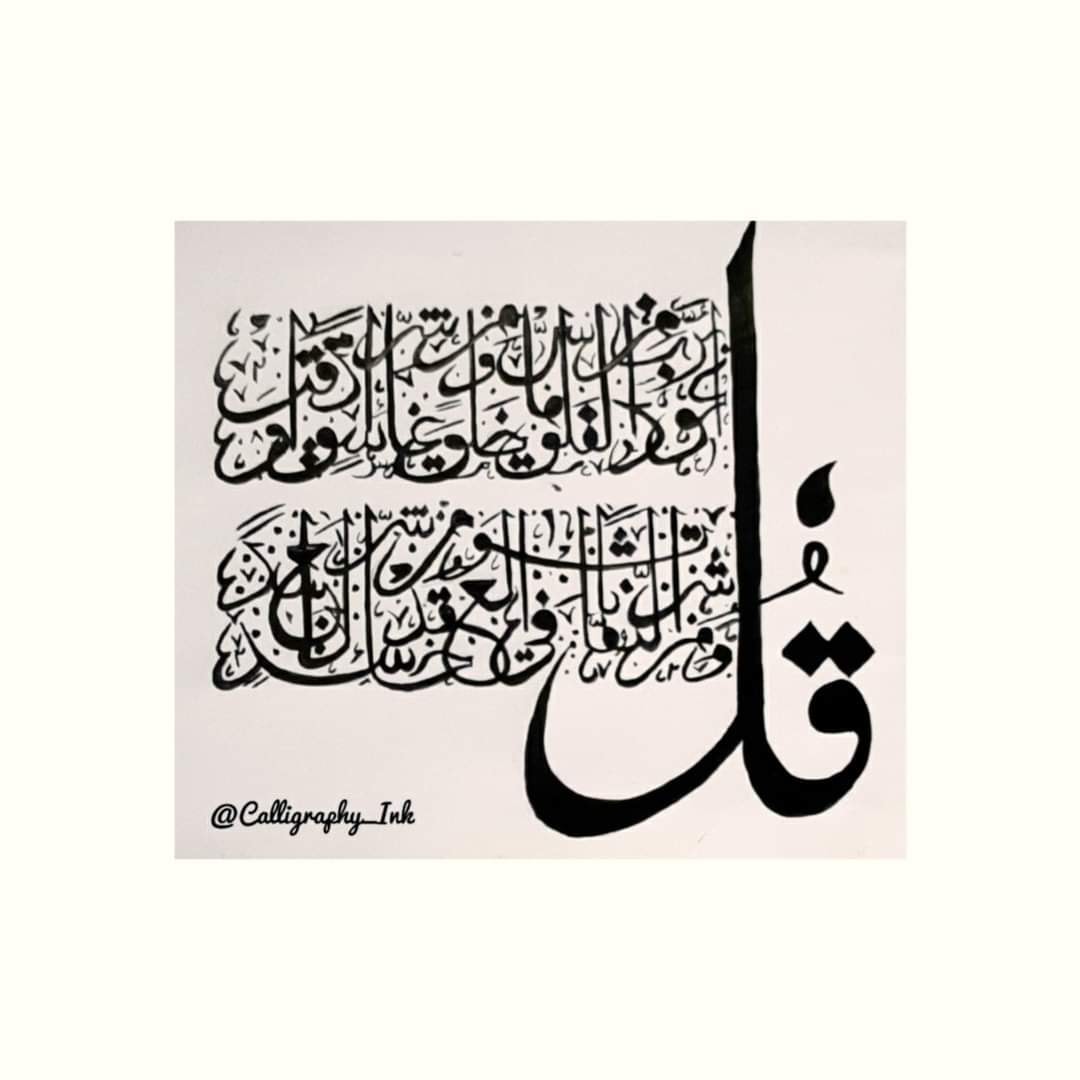 قُل
أعوذ برب الفلق من شر ما خلق ومن شر غاسق إذا وقب
ومن شر النفاثات في العقد ومن شر حاسد إذا حسد
@Calligraphy_Ink